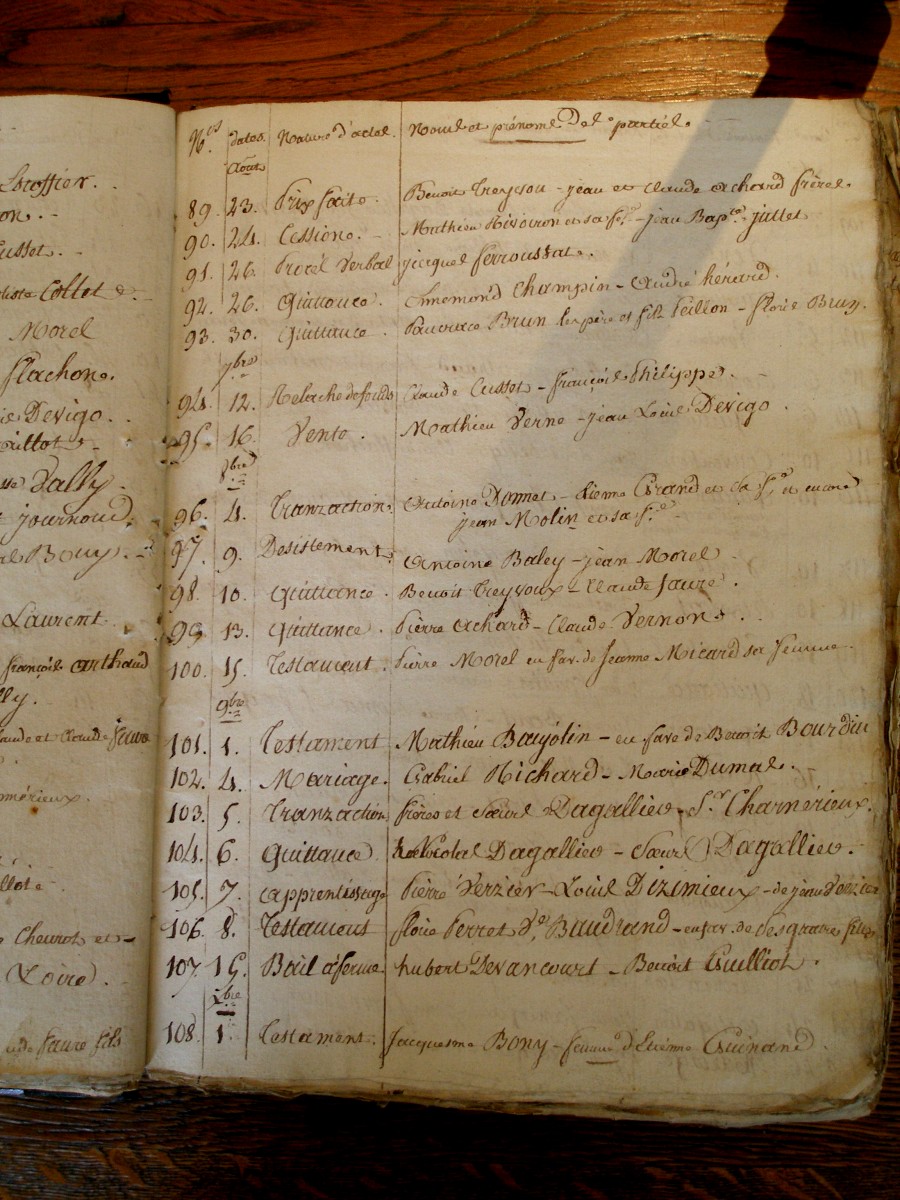 Stoffier.
on.
usset.
Collet
Morel
flachon.
Devigo.
Vally.
journoud.
Bouy.
Laurent
françois arthaud
lly.
aude et Claude faure
mérieux.
llot
Chevrot et
(Loire)
ude faure fils
Nos dates Nature d'actes Noms et prénoms Des parties.
Août
89. 23. Prix faite. Benoit Treyvou - jean et claude achard frères.
90. 24. Cession. Mathieu Rivoiron et sa fe - jean Bapte juttet
91. 26. Procès Verbal jacques ferroussat.
92. 26. Quittance. Ennemond Champin - andré hérard.
93. 30. Quittance. Pancrace Brun les père et fils Peillon - florie Bruy.
7bre
94. 12. Relache de fonds Claude Cusset - françois Philippe.
95. 16. Vente. Mathieu Verne - jean Louis Devigo.
8bre
96. 4. Tranzaction. Antoine Donnet - Etienne Grand et sa fe et encore
jean Molin et sa fe
97. 9. Desistement. Antoine Baley - jean Morel
98. 10. Quittance. Benoit Treyvoux - Claude faure.
99. 13. Quittance. Pierre achard - Claude Vernon.
100. 15. Testament. Pierre Morel en fav. de Jeanne Micard sa femme.
9bre
101. 1. Testament Mathieu Bajolin - en fav. de Benoit Bourdin
102. 4. Mariage. Gabriel Richard - Marie Dumas.
103. 5. Tranzaction frères et sœurs Dagallier - Sr. Charmérieux.
104. 6. Quittance Nicolas Dagallier - Sœurs Dagallier.
105. 7. apprentissage Pierre Verzier - Louis Dizimieux - de jean Verzier
106. 8. Testament florie Perret Ve. Baudrand - en fav. de ses quatre filles
107. 15. Bail à ferme hubert Devancourt - Benoit Guilliot.
Xbre
108. 1. Testament. Jacquesme Bony - femme d'Etienne Guinand.